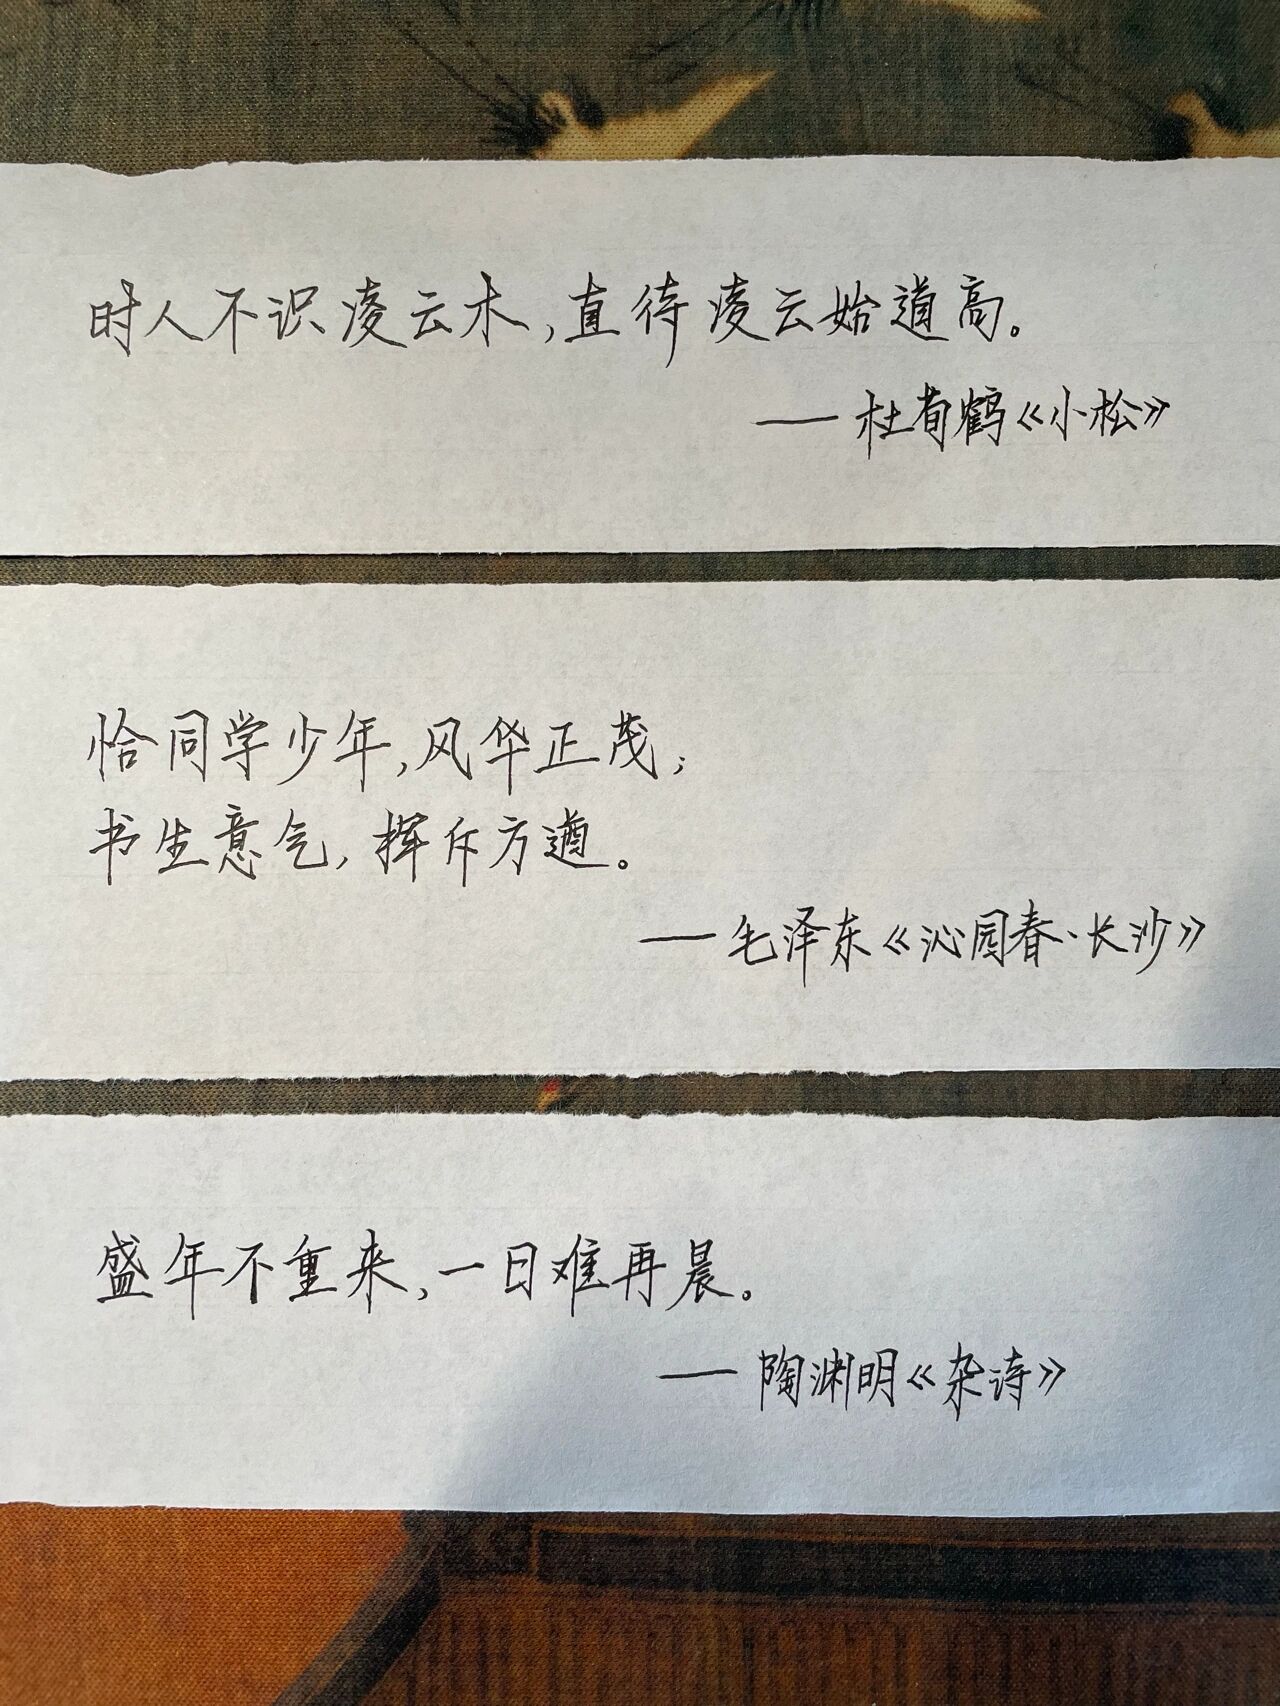 时人不识凌云木，直待凌云始道高。
——杜荀鹤《小松》
恰同学少年，风华正茂；
书生意气，挥斥方遒。
——毛泽东《沁园春·长沙》
盛年不重来，一日难再晨。
——陶渊明《杂诗》